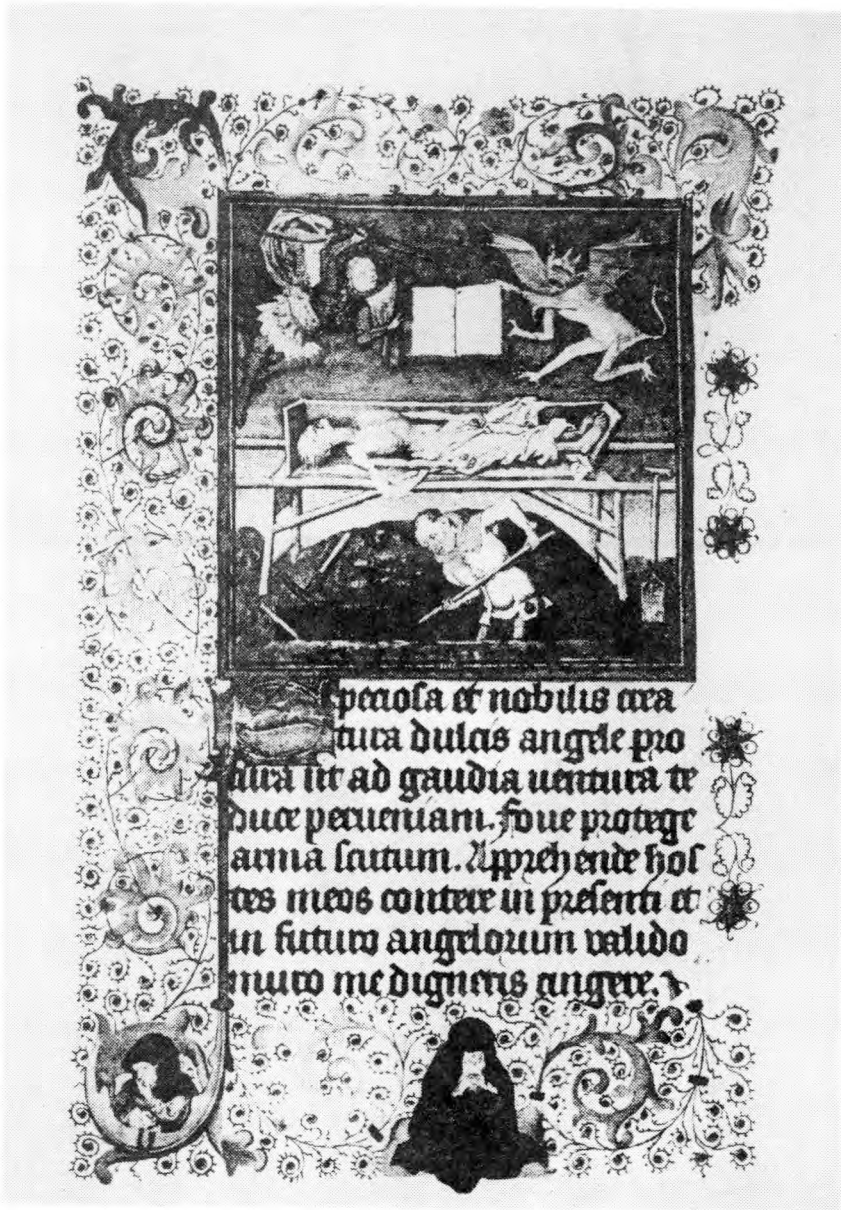 Speciosa et nobilis crea
tura dulcis angele pro
cura ut ad gaudia uentura te
duce perueniam. foue protege
arma scutum. Apprehende hos
tes meos contere in presenti et
in futuro angelorum valido
muro me digneris cingere.